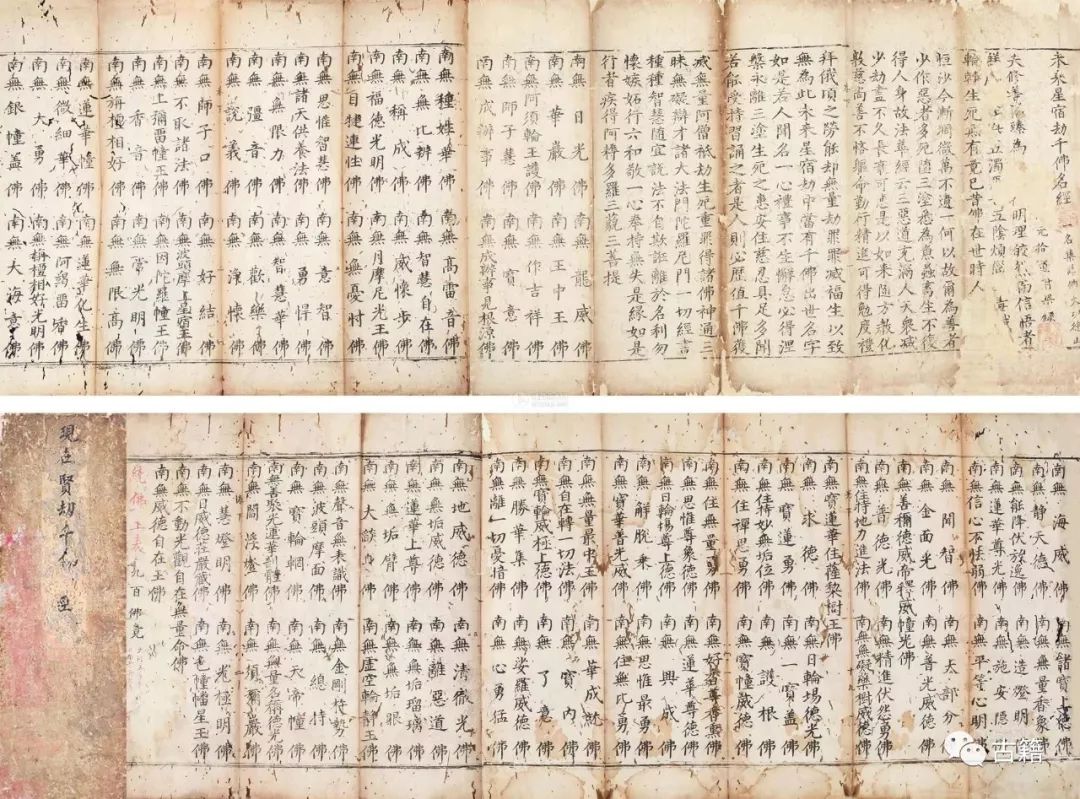 未來星宿劫千佛名經
明理皎然而信悟者
五陰煩惱
輪轉生死無有竟已昔佛在世時人
恒沙今漸凋微萬不遺一何以故爾為善者
少作惡者多死墮三塗悉為魚蟲畜生不復
得人身故法華經云三惡道充滿人天衆減
少劫盡不久長衰可悲是以如来隨方教化
敦慈尚善不悋軀命勤行精進可得勉度禮
拜俄頃之勞能却無量劫罪滅福生以致
無為此未来星宿劫中當有千佛出世名字
如是若人聞名一心禮事不生懈怠必得涅
槃永離三塗生死之患安住慈忍具足多聞
若能受持習誦之者是人則必歷值千佛獲
滅無量阿僧祇劫生死重罪得諸佛神通三
昧無礙辯才諸大法門陀羅尼門一切經書
種種智慧隨宜說法不自欺誑離於名利勿
懷嫉妬行六和敬一心奉持無失是緣如是
行者疾得阿耨多羅三藐三菩提
南無日光佛 南無龍威佛
南無華嚴佛 南無王中王佛
南無阿須輪王護佛 南無作吉祥佛
南無師子慧佛 南無寶意佛
南無成辦事佛 南無成辦事見根源佛
南無種姓華佛 南無高雷音佛
南無無比辯佛 南無智慧自在佛
南無稱成佛 南無威懷步佛
南無福德光明佛 南無月摩尼光王佛
南無自犍連性佛 南無無憂時佛
南無思惟智慧佛 南無意智佛
南無諸天供養法佛 南無勇悍佛
南無無限力佛 南無智慧華佛
南無彊音佛 南無歡樂佛
南無說義佛 南無淨懷佛
南無師子口佛 南無好結佛
南無不取諸法佛 南無波頭摩上星宿王佛
南無上彌雷幢王佛 南無因陀羅幢王佛
南無香音佛 南無常光明佛
南無栴檀相好佛 南無無限高佛
南無蓮華幢佛 南無蓮華化生佛
南無微細華佛 南無阿竭雷皆佛
南無大勇佛 南無栴檀相好光明佛
南無銀幢蓋佛 南無大海意佛
南無海威佛 南無諸寶上德佛
南無靜天德佛 南無無量香象佛
南無能降伏放逸佛 南無造燈明佛
南無蓮華尊光佛 南無施安隱佛
南無信心不怯弱佛 南無平等心明佛
南無聞智佛 南無大部分佛
南無金面光佛 南無善光威德佛
南無善稱德威帝釋威幢光佛
南無普德光佛 南無精進伏怨勇佛
南無住持地力進法佛 南無無礙藥樹威德佛
南無寶蓮華住薩梨樹王佛
南無求德佛 南無日輪場德光佛
南無寶蓮勇佛 南無一寶蓋佛
南無住持妙無垢位佛 南無護根佛
南無住禪思勇佛 南無寶幢威德佛
南無住無量勇佛
南無思惟尊象德佛 南無蓮華尊德佛
南無日輪場尊上德佛 南無興威佛
南無解脫乘佛 南無思惟最勇佛
南無寶華普光威佛 南無住無比勇佛
南無無量最中王佛 南無華成就佛
南無自在轉一切法佛 南無寶內佛
南無寶輪威極上德佛 南無了意佛
南無勝華集佛 南無娑羅威德佛
南無離一切憂惱佛 南無心勇猛佛
南無地威德佛 南無清徹光佛
南無無垢德佛 南無離惡道佛
南無蓮華上尊佛 南無無垢瑠璃佛
南無無垢臂佛 南無無垢眼佛
南無大談佛 南無虛空輪靜王佛
南無聲音無表識佛 南無金剛楷勢佛
南無波頭摩面佛 南無總持佛
南無寶輪網佛 南無天帝幢佛
南無善聚光蓮華剖體佛 南無無量名稱德光佛
南無閻浮燈佛 南無須彌巖佛
南無慧燈明佛 南無光極明佛
南無日威德莊嚴藏佛 南無憧幡星王佛
南無不動光觀自在無量命佛
南無威德自在王佛
九百佛竟
現在賢劫千佛
古籍